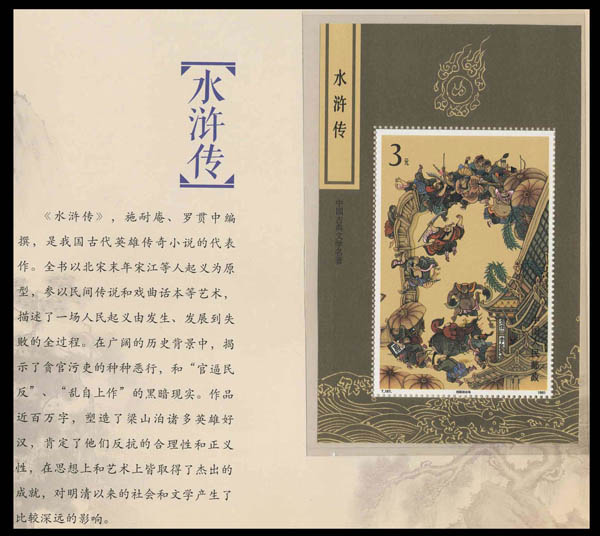 水浒传
《水浒传》，施耐庵、罗贯中编
撰，是我国古代英雄传奇小说的代表
作。全书以北宋末年宋江等人起义为原
型，参以民间传说和戏曲话本等艺术，
描述了一场人民起义由发生、发展到失
败的全过程。在广阔的历史背景中，揭
示了贪官污吏的种种恶行，和“官逼民
反”、“乱自上作”的黑暗现实。作品
近百万字，塑造了梁山泊诸多英雄好
汉，肯定了他们反抗的合理性和正义
性，在思想上和艺术上皆取得了杰出的
成就，对明清以来的社会和文学产生了
比较深远的影响。
水浒传
中国古典文学名著
3元
中国人民邮政